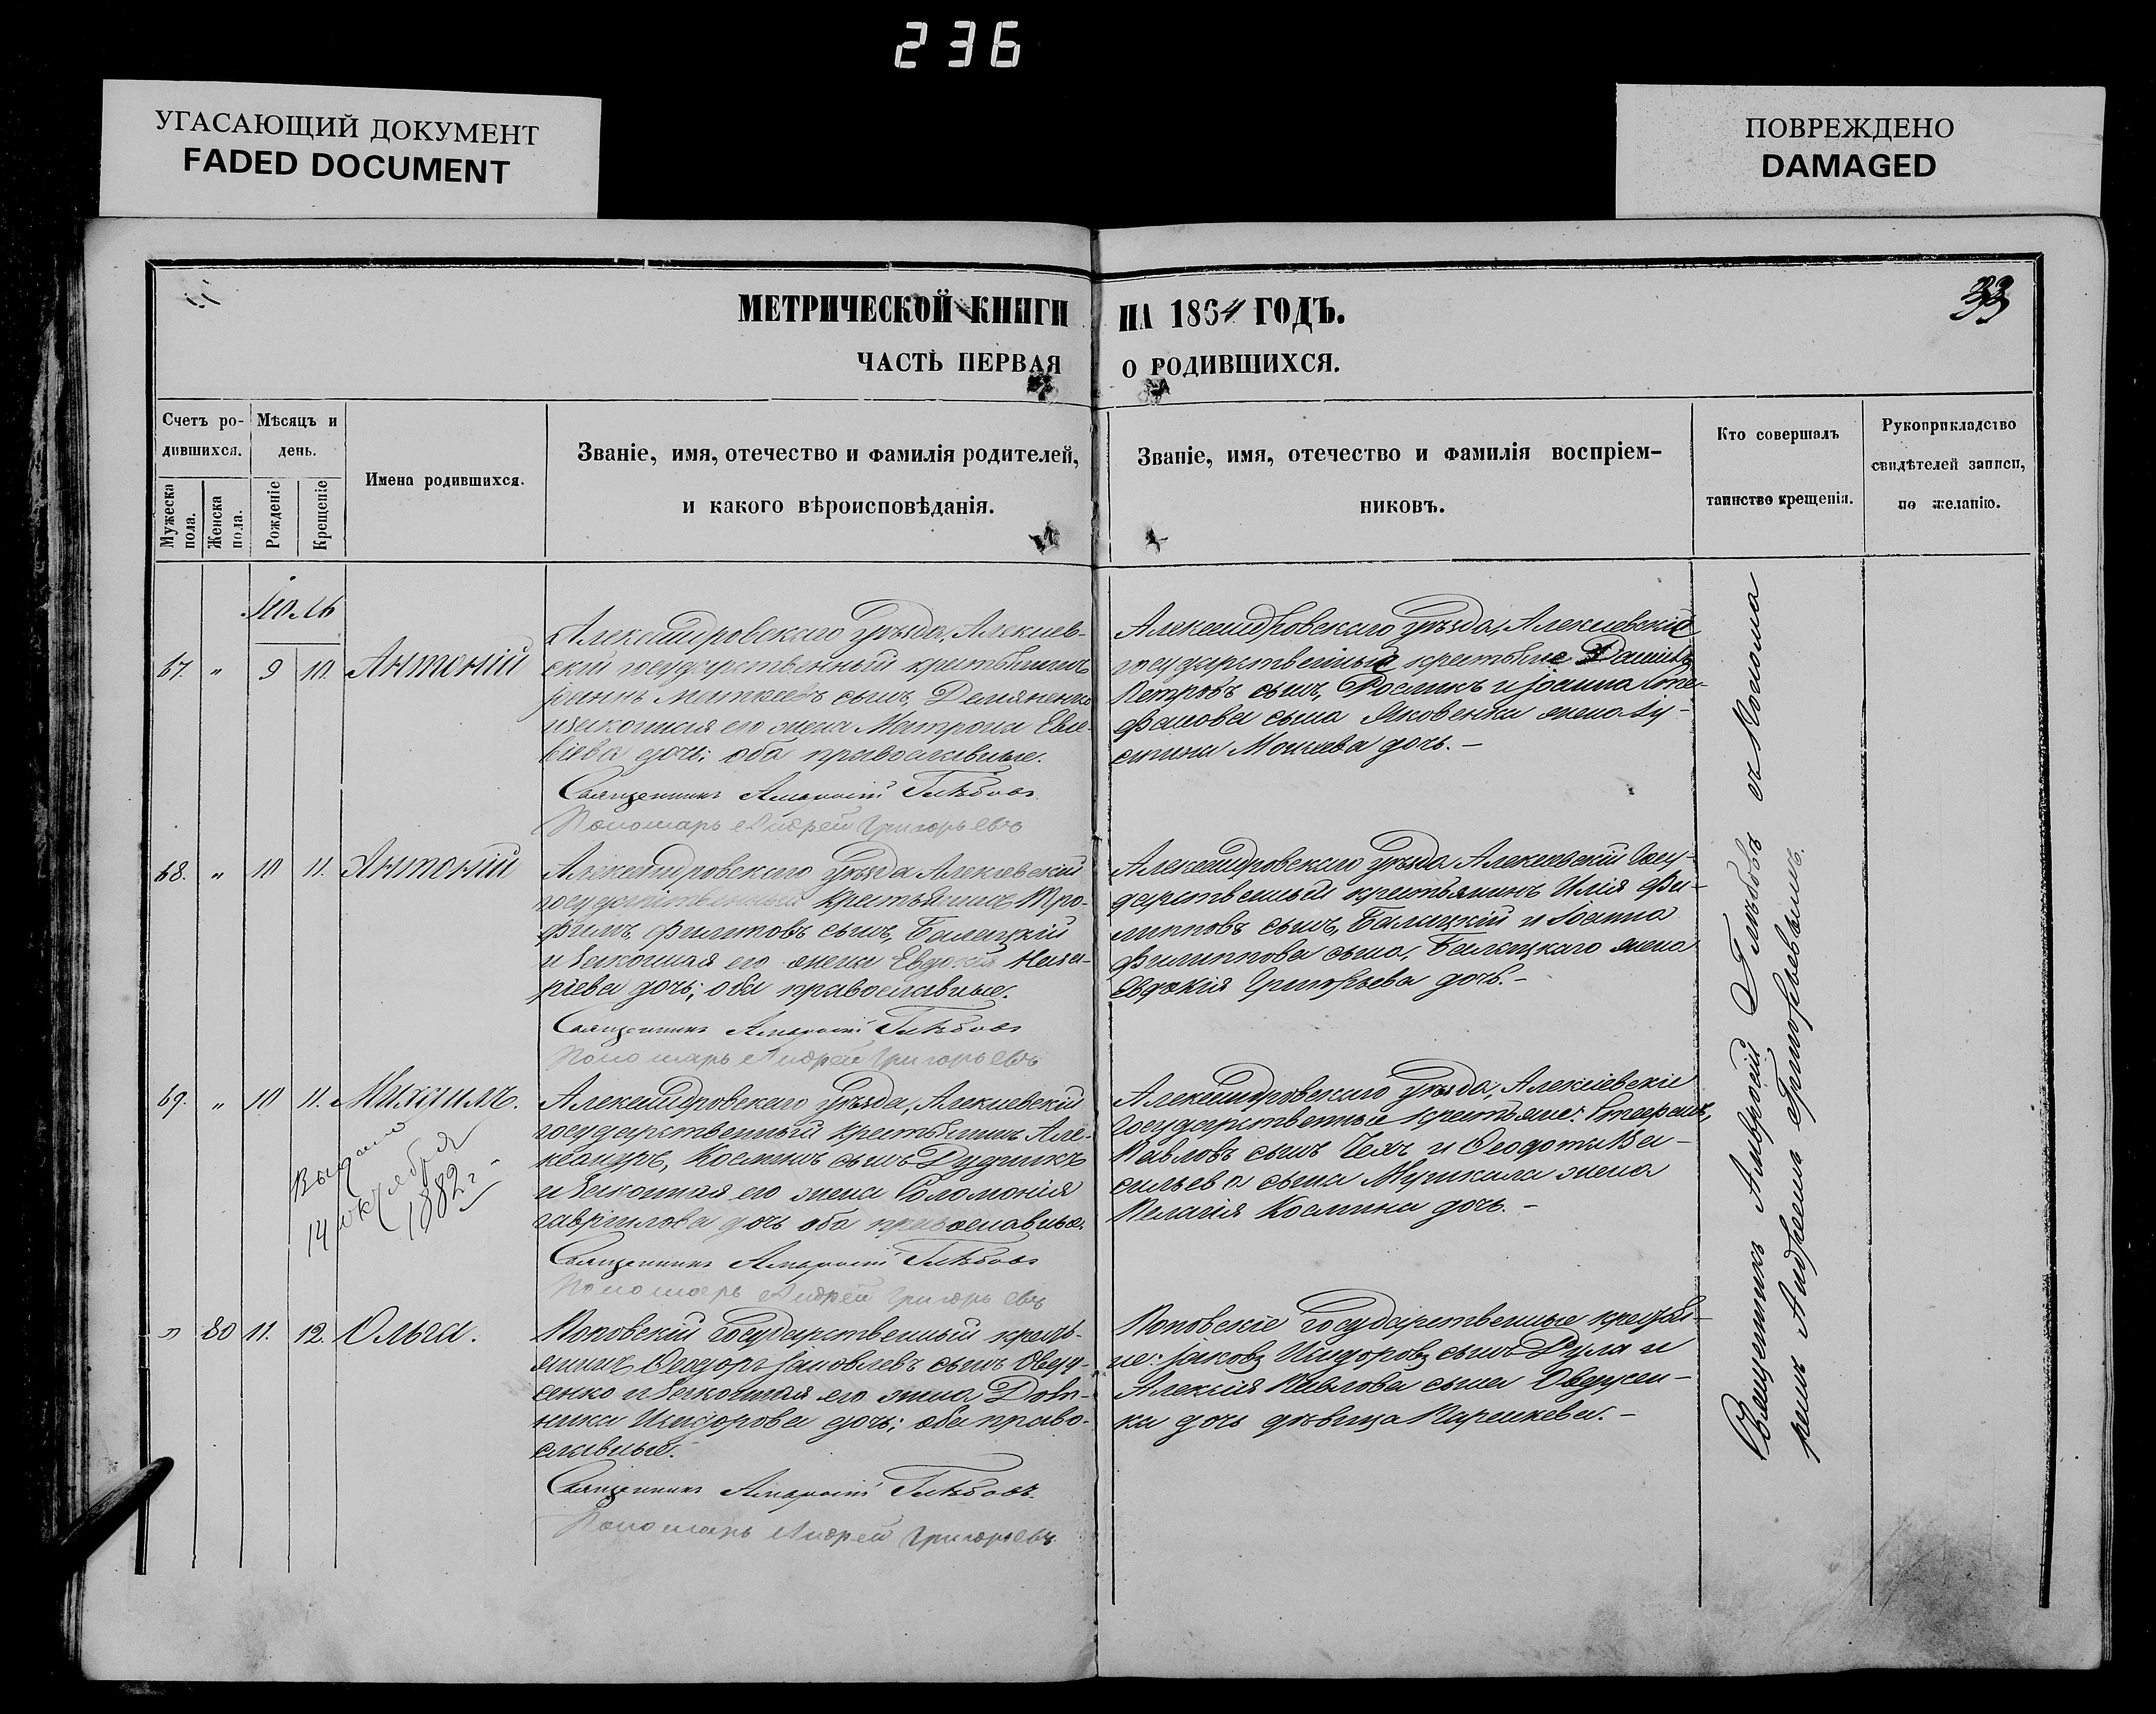 236
УГАСАЮЩИЙ ДОКУМЕНТ
FADED DOCUMENT
ПОВРЕЖДЕНО
DAMAGED
33
МЕТРИЧЕСКОЙ КНИГИ НА 1864 ГОДЪ.
ЧАСТЬ ПЕРВАЯ О РОДИВШИХСЯ.
Счетъ ро-
дившихся.
Мужеска
пола.
Женска
пола.
Мѣсяцъ и
день.
Рожденіе
Крещеніе
Имена родившихся.
Званіе, имя, отечество и фамилія родителей,
и какого вѣроисповѣданія.
Званіе, имя, отечество и фамилія воспріем-
никовъ.
Кто совершалъ
таинство крещенія.
Рукоприкладство
свидѣтелей записи,
по желанію.
Іюль
67. " 9 10. Антоній
Александровскаго уѣзда, Алексіев-
скій государственный крестьянинъ
сынъ, Демяненко
и законная его жена Матрона Евсе-
віева дочь; оба православные.
Священникъ Амвросій Глѣбовъ
Пономарь Андрей Григорьевъ
Александровскаго уѣзда, Алексіевскіе
государственные крестьяне Даніилъ
Петровъ сынъ, и Іоанна Сте-
фанова сына Яковенка жена Іу-
стина Моисеева дочь. –
68. " 10 11. Антоній
Александровскаго уѣзда Алексіевскій
государственный крестьянинъ Тро-
фимъ Филиповъ сынъ, Балицкій
и законная его жена Евдокія Назა-
ріева дочь; оба православные.
Священникъ Амвросій Глѣбовъ
Пономарь Андрей Григорьевъ
Александровскаго уѣзда Алексіевскій госу-
дарственный крестьянинъ Илія Фи-
липповъ сынъ, Балицкій и Іоанна
Филиппова сына, Балицкаго жена
Евдокія Григорьева дочь. –
69. " 10 11. Михаилъ.
Выдано
14 октября
1882 г.
Александровскаго уѣзда, Алексіевскій
государственный крестьянинъ Але-
ксандръ, Косминъ сынъ Дудникъ
и законная его жена Соломонія
Гаврилова дочь оба православные.
Священникъ Амвросій Глѣбовъ
Пономарь Андрей Григорьевъ
Александровскаго уѣзда, Алексіевскіе
государственные крестьяне: Стефанъ,
Павловъ сынъ Чехъ и Ѳеодота Ва-
сильева сына жена
Пелагія Космина дочь. –
" 80 11. 12. Ольга.
Поповскій государственный кресть-
янинъ Ѳеодоръ Іаковлевъ сынъ Овсу-
сенко и законная его жена Дом-
ника Исидорова дочь; оба право-
славные.
Священникъ Амвросій Глѣбовъ.
Пономарь Андрей Григорьевъ
Поповскіе государственные крестья-
не: Іаковъ Исидоровъ сынъ Дула и
Алексія Павлова сына
ка дочь дѣвица Параскева. –
Священникъ Амвросій Глѣбовъ съ Понома
ремъ Андреемъ Григорьевымъ.